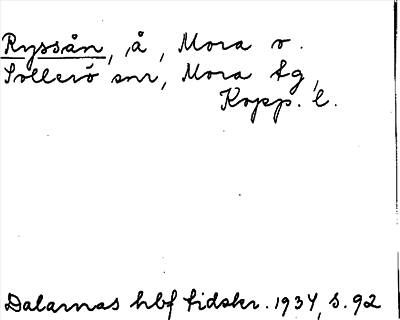 Ryssån, å, Mora o.
Sollerö snr, Mora tg,
Kopp. l.
Dalarnas hbf tidskr. 1937, s. 92